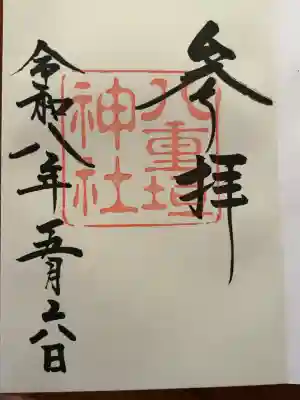 参拝
八重垣
神社
令和八年五月六日